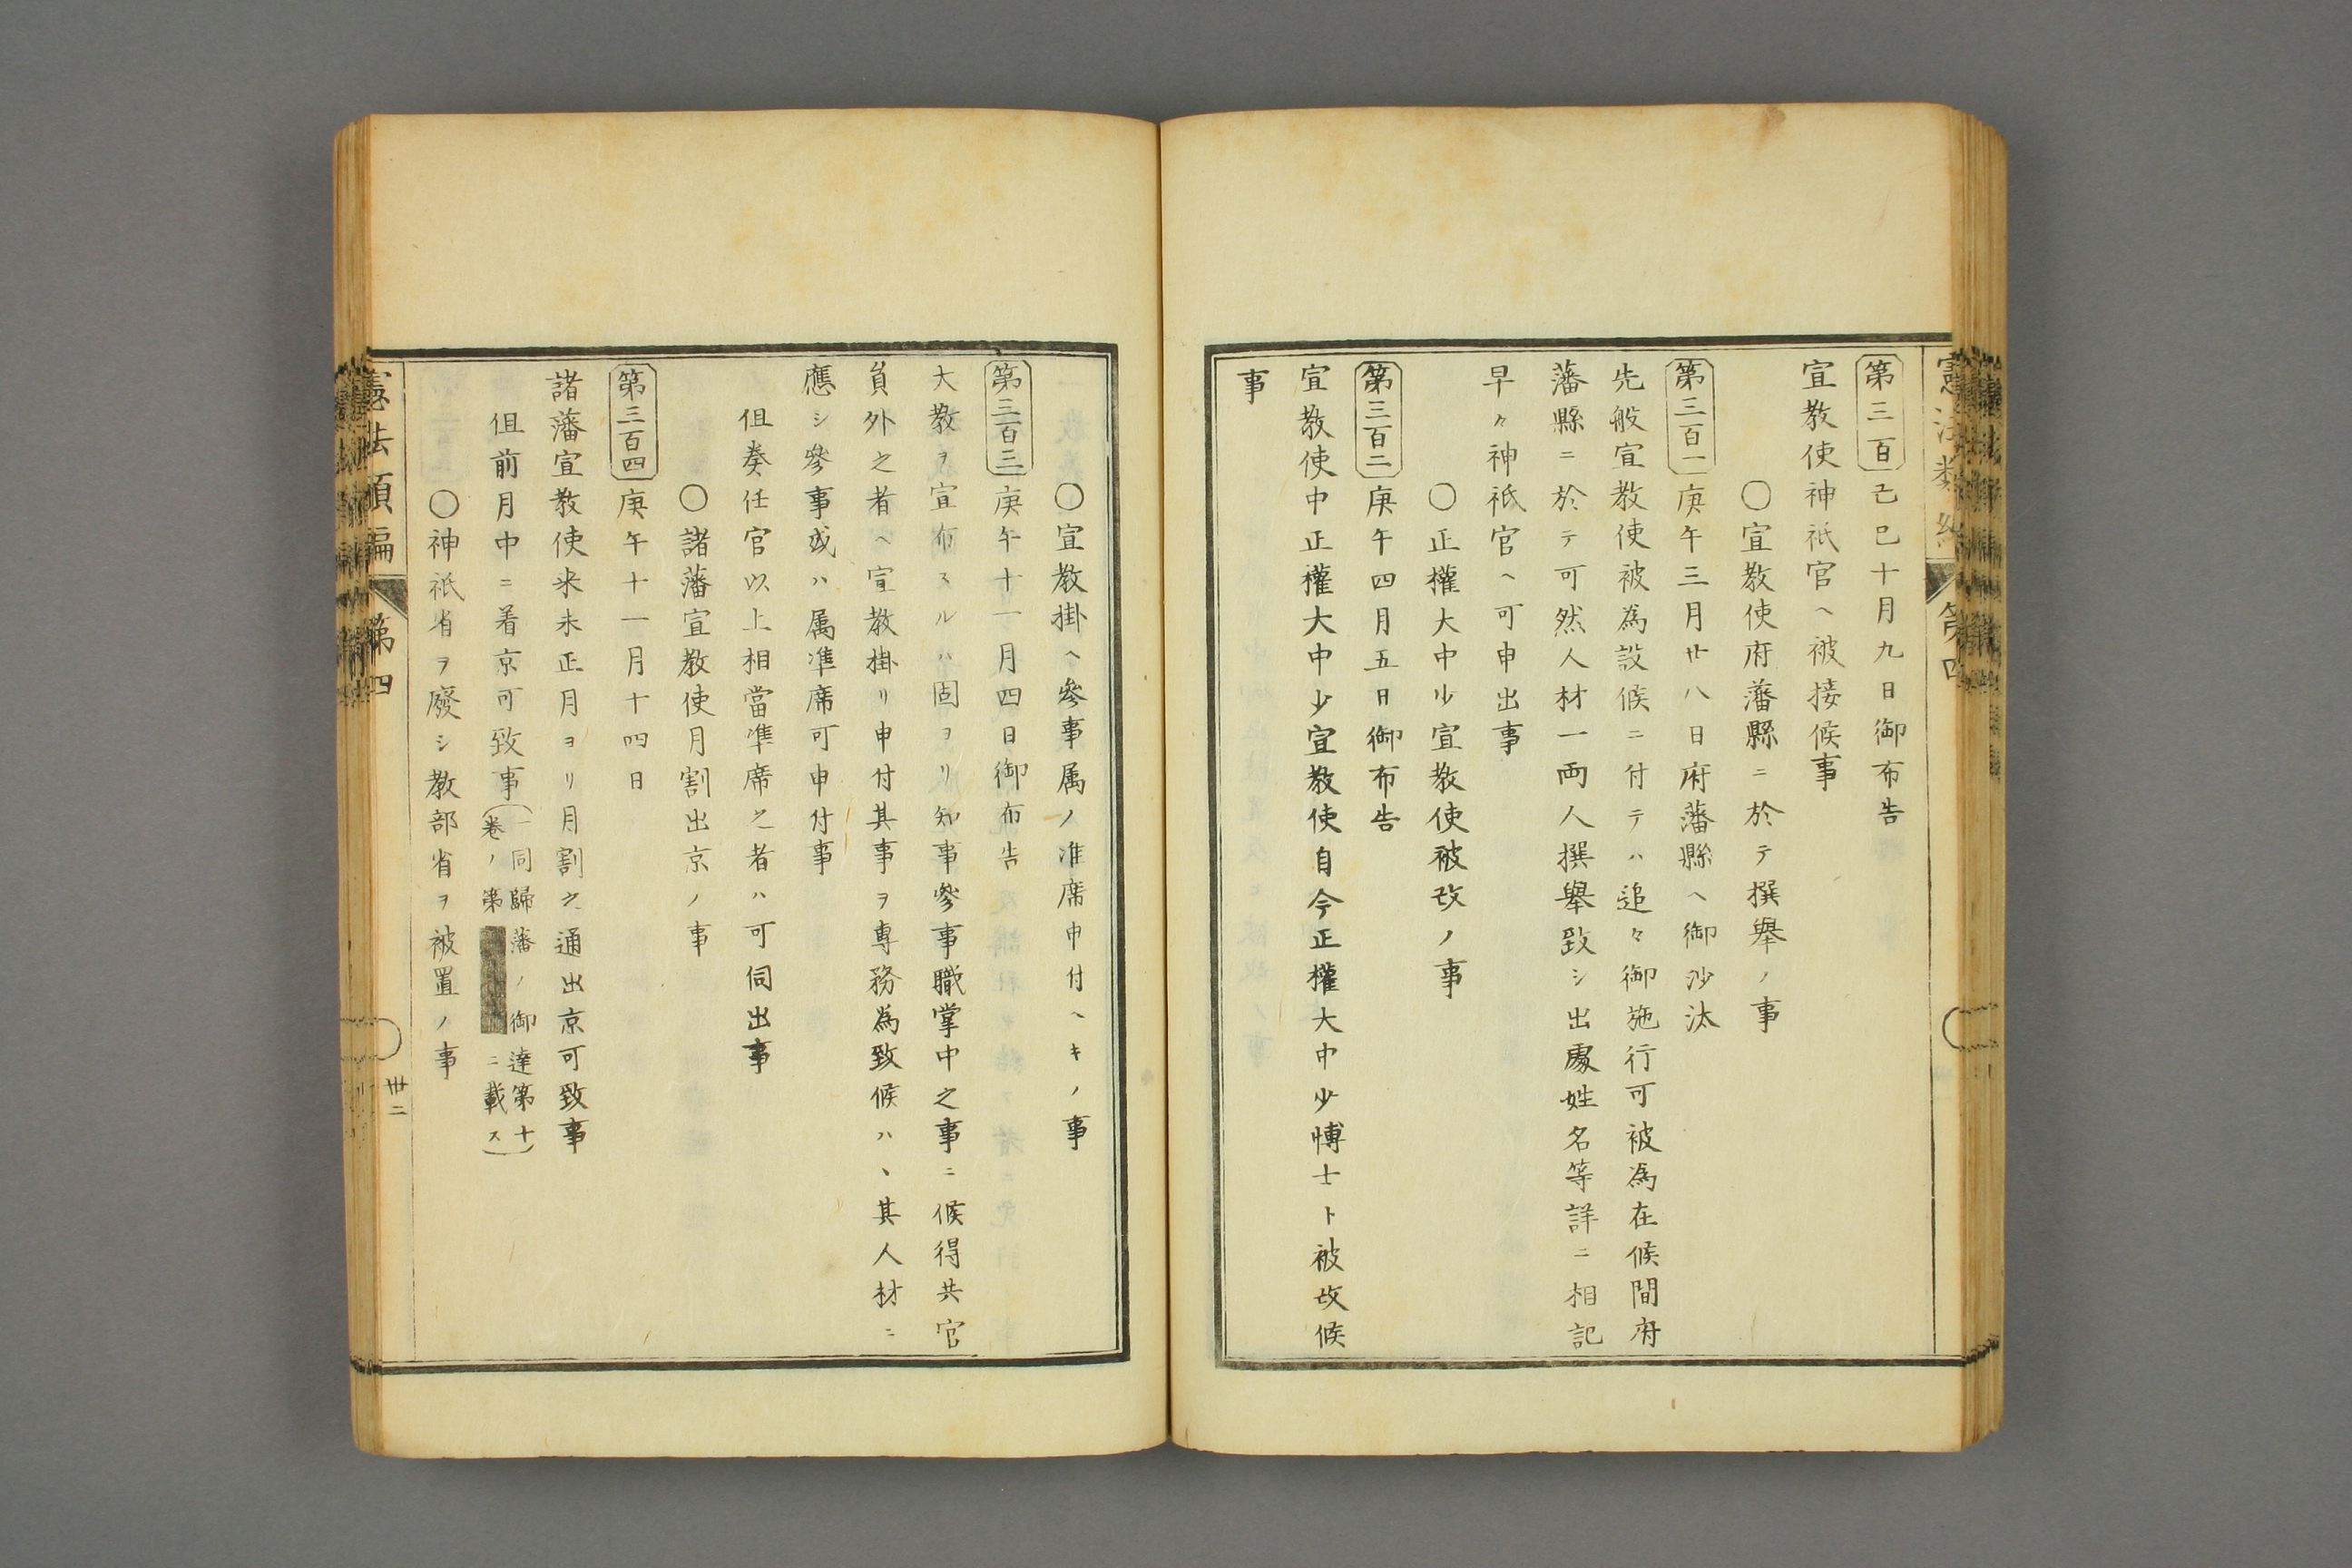 第三百 己巳十月九日御布告
宣教使神祇官ヘ被接候事
〇宣教使府藩縣ニ於テ撰舉ノ事
第三百一 庚午三月廿八日府藩縣ヘ御沙汰
先般宣教使被為設候ニ付テハ追々御施行可被為在候間府
藩縣ニ於テ可然人材一両人撰舉致シ出處姓名等詳ニ相記
早々神祇官ヘ可申出事
〇正權大中少宣教使被改ノ事
第三百二 庚午四月五日御布告
宣教使中正權大中少宣教使自今正權大中少博士ト被改候
事
〇宣教掛ヘ參事属ノ准席申付ヘキノ事
第三百三 庚午十一月四日御布告
大教ヲ宣布スルハ固ヨリ知事參事職掌中之事ニ候得共官
員外之者ヘ宣教掛リ申付其事ヲ専務為致候ハヽ其人材ニ
應シ參事或ハ属準席可申付事
但奏任官以上相當準席之者ハ可伺出事
〇諸藩宣教使月割出京ノ事
第三百四 庚午十一月十四日
諸藩宣教使来未正月ヨリ月割之通出京可致事
但前月中ニ着京可致事(一同歸藩ノ御達第十
卷ノ第 ニ載ス)
〇神祇省ヲ廢シ教部省ヲ被置ノ事
憲法類編 第四
卅二